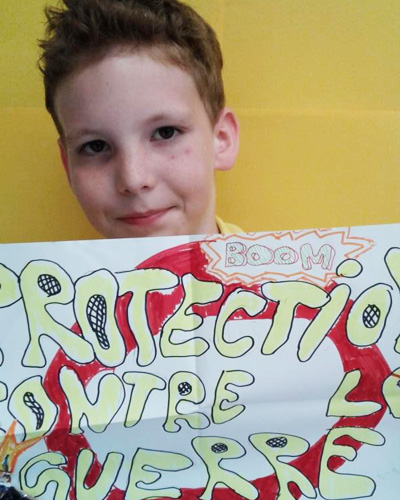 BOOM
PROTECTIO
CONTRE
GUERRE